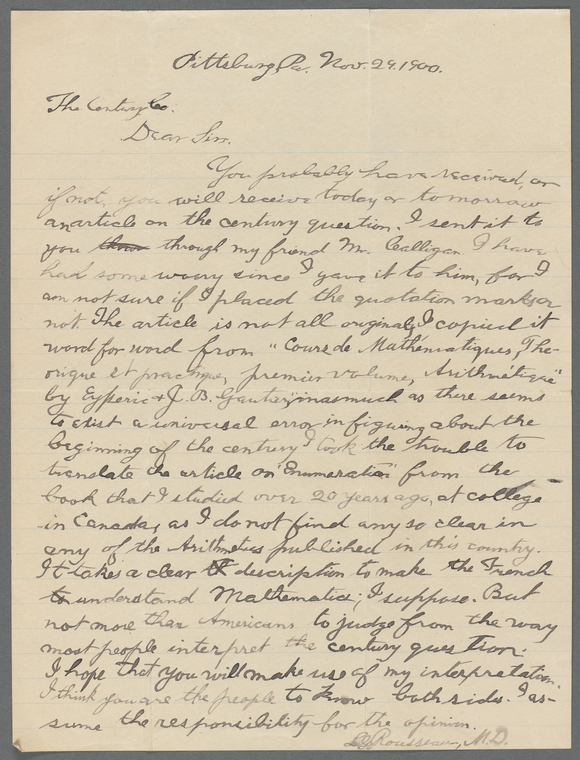 Pittsburg, Pa. Nov. 29. 1900.
The Century Co.
Dear Sir.
You probably have received, or
if not, you will receive today or tomorrow
an article on the century question. I sent it to
you through my friend Mr. Calligan I have
had some worry since I gave it to him, for I
am not sure if I placed the quotation marks or
not. The article is not all original, I copied it
word for word from "Cours de Mathématiques, The-
orique et practique, premier volume, Arithmétique"
by Eyperic & J. B. Gautier, inasmuch as there seems
to exist a universal error in figuring about the
beginning of the century I took the trouble to
translate the article on "Enumeration" from the
book that I studied over 20 years ago, at college
in Canada, as I do not find any so clear in
any of the Arithmetics published in this country.
It takes a clear description to make the French
understand Mathematics; I suppose. But
not more than Americans to judge from the way
most people interpret the century question.
I hope that you will make use of my interpretation.
I think you are the people to know both sides. I as-
sume the responsibility for the opinion.
Rousseau, M.D.